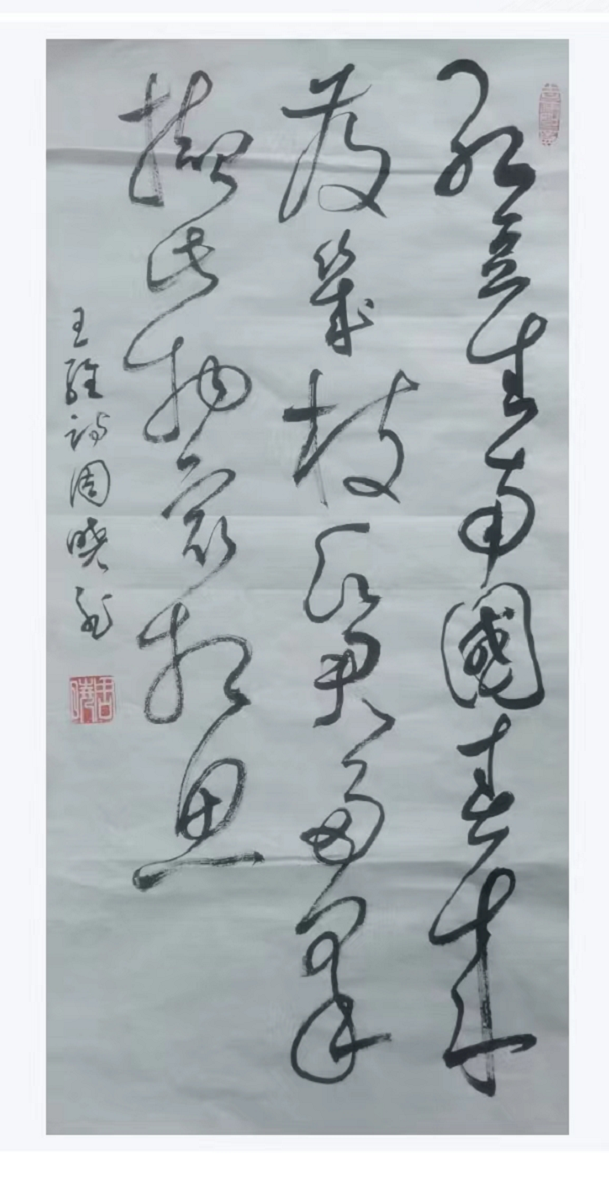 紅豆生南國春來
發幾枝願君多采
擷此物最相思
王維詩周曉
周曉